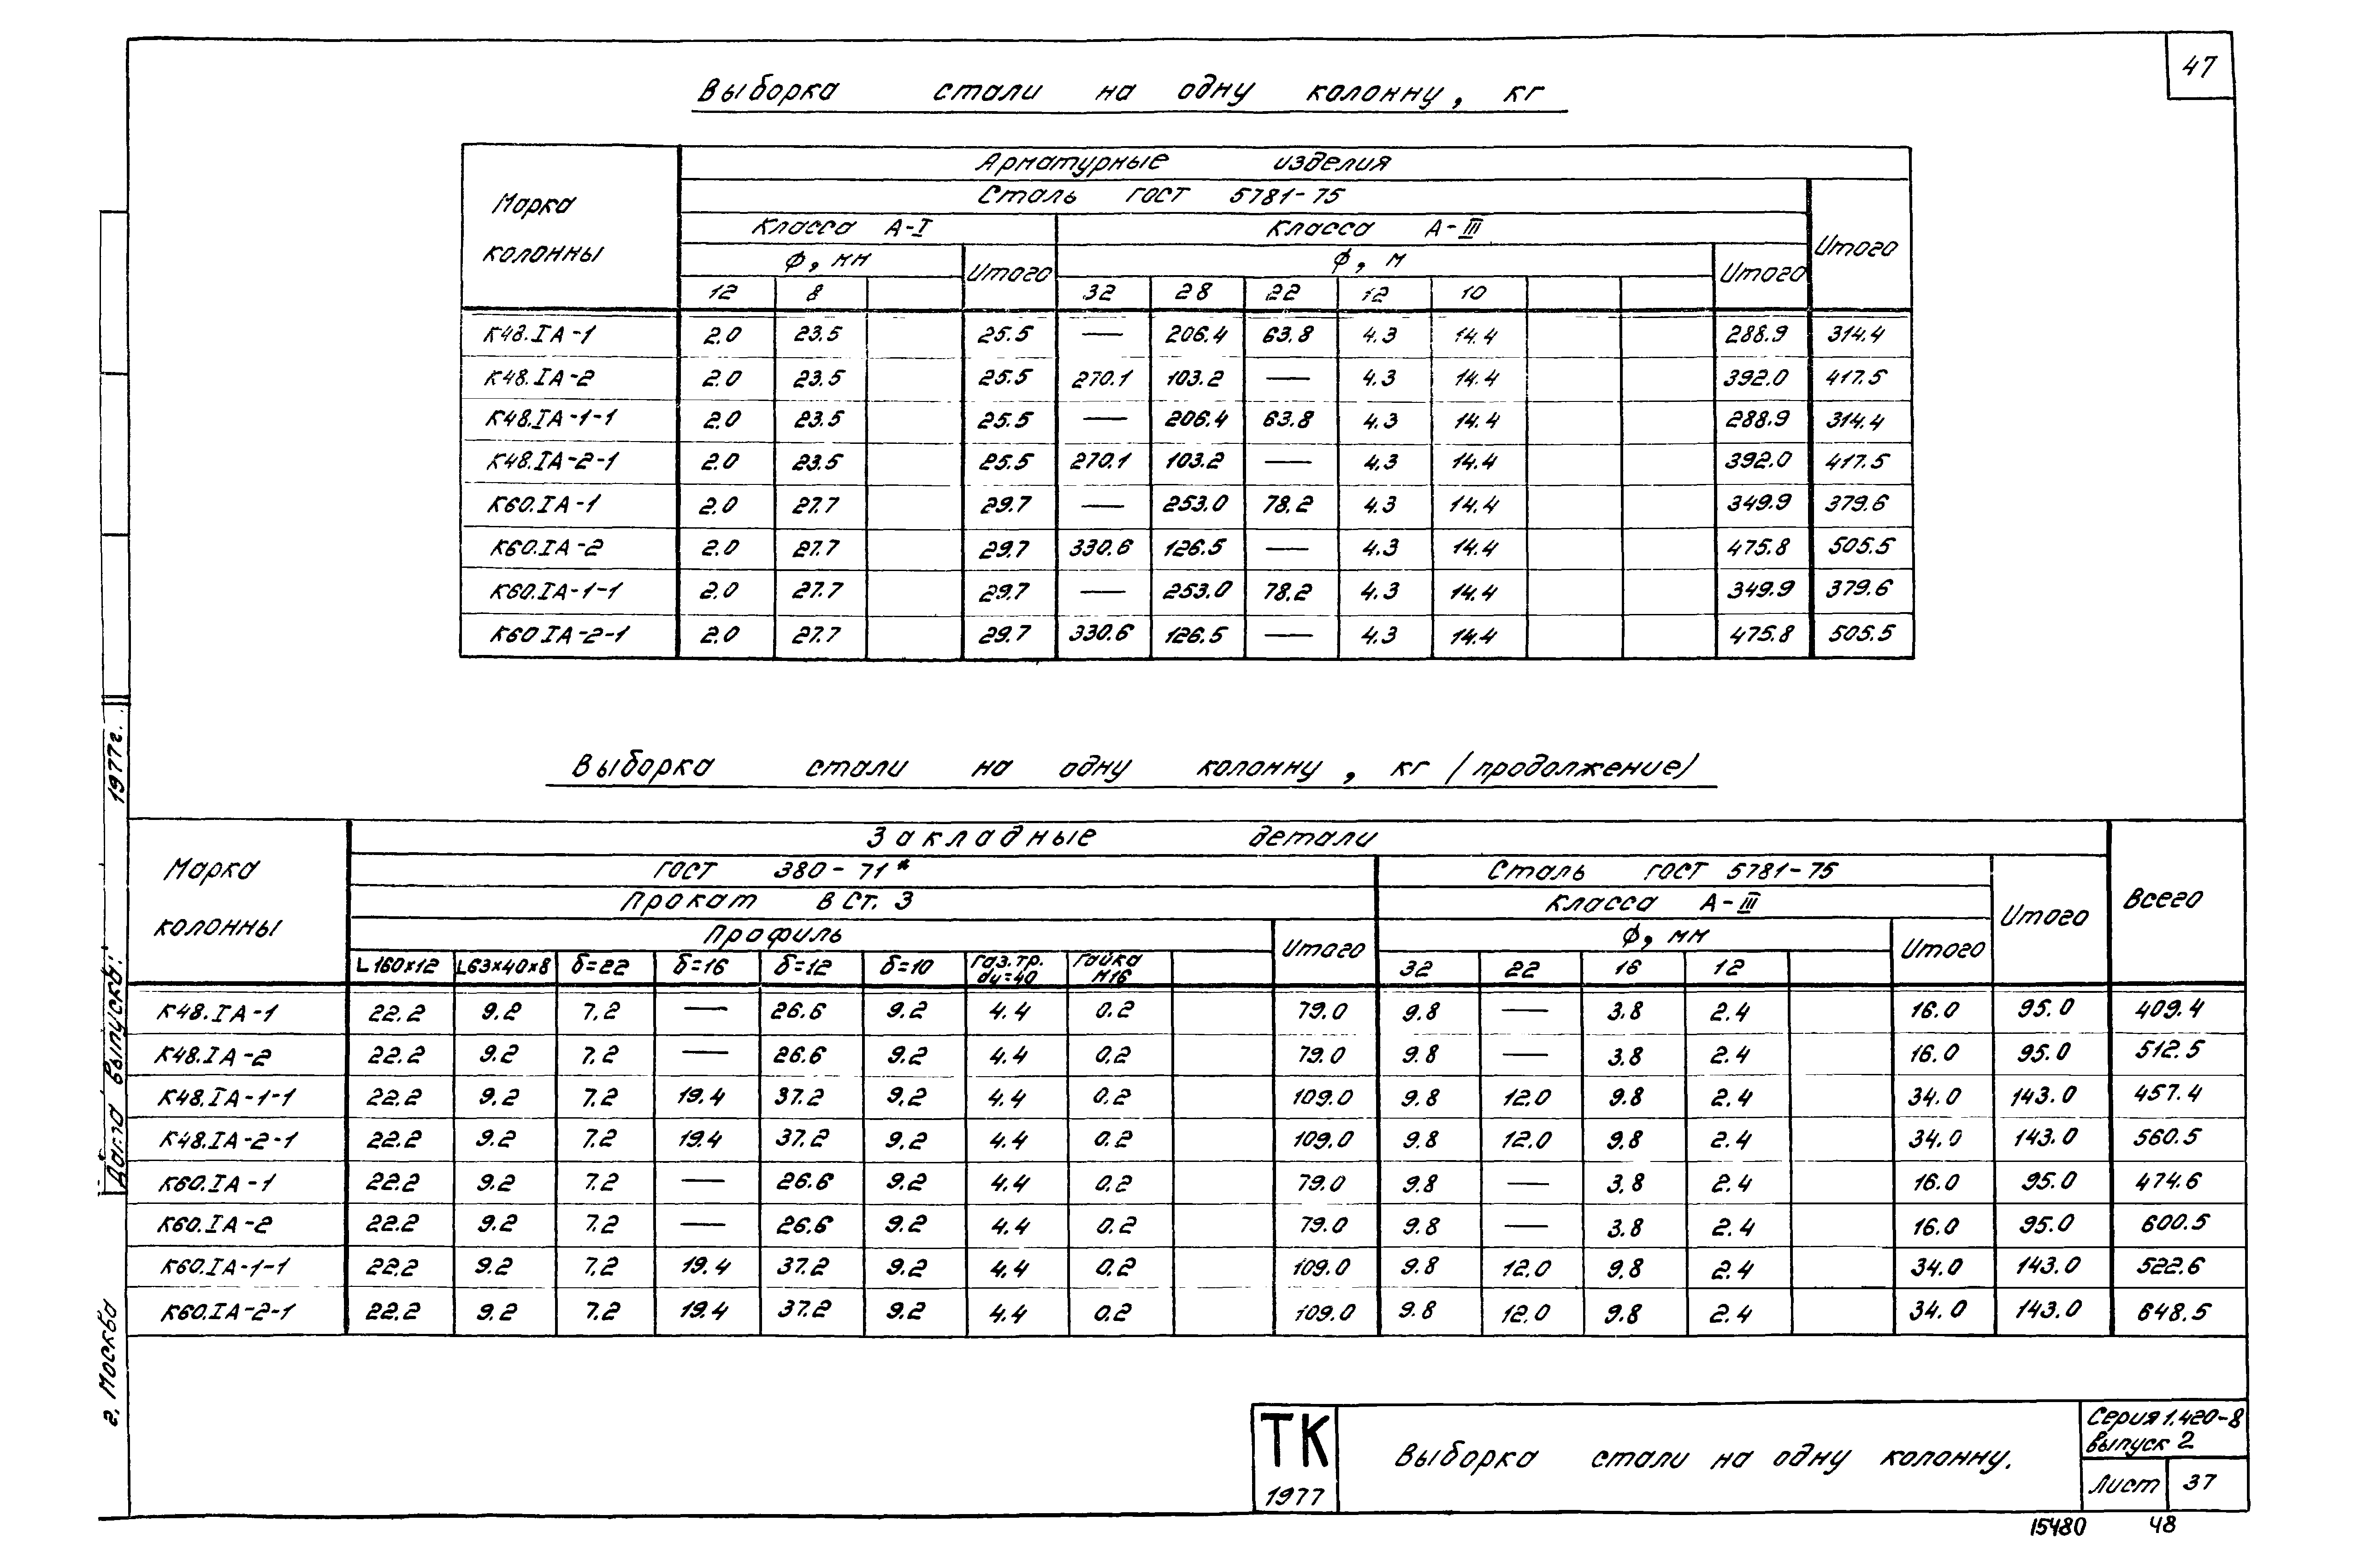 47
Выборка стали на одну колонну, кг
Марка колонны
Арматурные изделия
Сталь ГОСТ 5781-75
Итого
Класса А-I
Класса А-III
Ф, мм
Итого
Ф, м
Итого
12 8 32 28 22 12 10
К48.IА-1 2.0 23.5 25.5 — 206.4 63.8 4.3 14.4 288.9 314.4
К48.IА-2 2.0 23.5 25.5 270.1 103.2 — 4.3 14.4 392.0 417.5
К48.IА-1-1 2.0 23.5 25.5 — 206.4 63.8 4.3 14.4 288.9 314.4
К48.IА-2-1 2.0 23.5 25.5 270.1 103.2 — 4.3 14.4 392.0 417.5
К60.IА-1 2.0 27.7 29.7 — 253.0 78.2 4.3 14.4 349.9 379.6
К60.IА-2 2.0 27.7 29.7 330.6 126.5 — 4.3 14.4 475.8 505.5
К60.IА-1-1 2.0 27.7 29.7 — 253.0 78.2 4.3 14.4 349.9 379.6
К60 IА-2-1 2.0 27.7 29.7 330.6 126.5 — 4.3 14.4 475.8 505.5
Выборка стали на одну колонну, кг (продолжение)
Марка колонны
Закладные детали
Всего
ГОСТ 380-71*
Сталь ГОСТ 5781-75
Итого
Прокат В Ст. 3
Класса А-III
Профиль
Итого
Ф, мм
Итого
L160×12 L63×40×8 δ=22 δ=16 δ=12 δ=10 Газ.тр. dу=40 Гайка М16 32 22 16 12
К48.IА-1 22.2 9.2 7.2 — 26.6 9.2 4.4 0.2 79.0 9.8 — 3.8 2.4 16.0 95.0 409.4
К48.IА-2 22.2 9.2 7.2 — 26.6 9.2 4.4 0.2 79.0 9.8 — 3.8 2.4 16.0 95.0 512.5
К48.IА-1-1 22.2 9.2 7.2 19.4 37.2 9.2 4.4 0.2 109.0 9.8 12.0 9.8 2.4 34.0 143.0 457.4
К48.IА-2-1 22.2 9.2 7.2 19.4 37.2 9.2 4.4 0.2 109.0 9.8 12.0 9.8 2.4 34.0 143.0 560.5
К60.IА-1 22.2 9.2 7.2 — 26.6 9.2 4.4 0.2 79.0 9.8 — 3.8 2.4 16.0 95.0 474.6
К60.IА-2 22.2 9.2 7.2 — 26.6 9.2 4.4 0.2 79.0 9.8 — 3.8 2.4 16.0 95.0 600.5
К60.IА-1-1 22.2 9.2 7.2 19.4 37.2 9.2 4.4 0.2 109.0 9.8 12.0 9.8 2.4 34.0 143.0 522.6
К60.IА-2-1 22.2 9.2 7.2 19.4 37.2 9.2 4.4 0.2 109.0 9.8 12.0 9.8 2.4 34.0 143.0 648.5
г. Москва Дата выпуска: 1977г.
ТК
1977
Выборка стали на одну колонну.
Серия 1.420-8
выпуск 2
Лист 37
15480 48